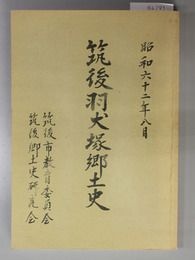 昭和六十二年八月
筑後羽犬塚郷土史
筑後市教育委員会
筑後郷土史研究会